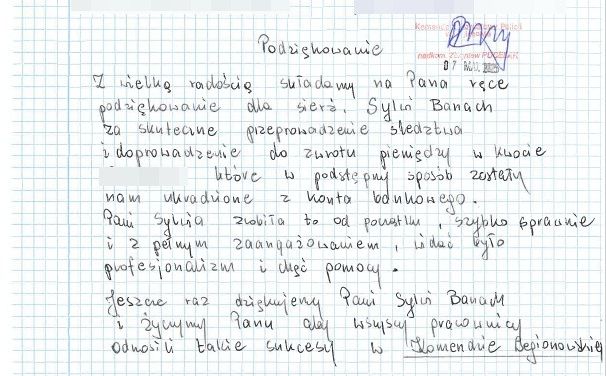 Podziękowanie
Z wielką radością składamy na Pana ręce
podziękowanie dla sierż. Sylwii Banach
za skuteczne przeprowadzenie śledztwa
i doprowadzenie do zwrotu pieniędzy w kwocie
które w podstępny sposób zostały
nam ukradzione z konta bankowego.
Pani Sylwia zrobiła to od początku, szybko sprawnie
i z pełnym zaangażowaniem, widać było
profesjonalizm i chęć pomocy.
Jeszcze raz dziękujemy Pani Sylwii Banach
i życzymy Panu aby wszyscy pracownicy
odnosili takie sukcesy w Komendzie Legionowskiej